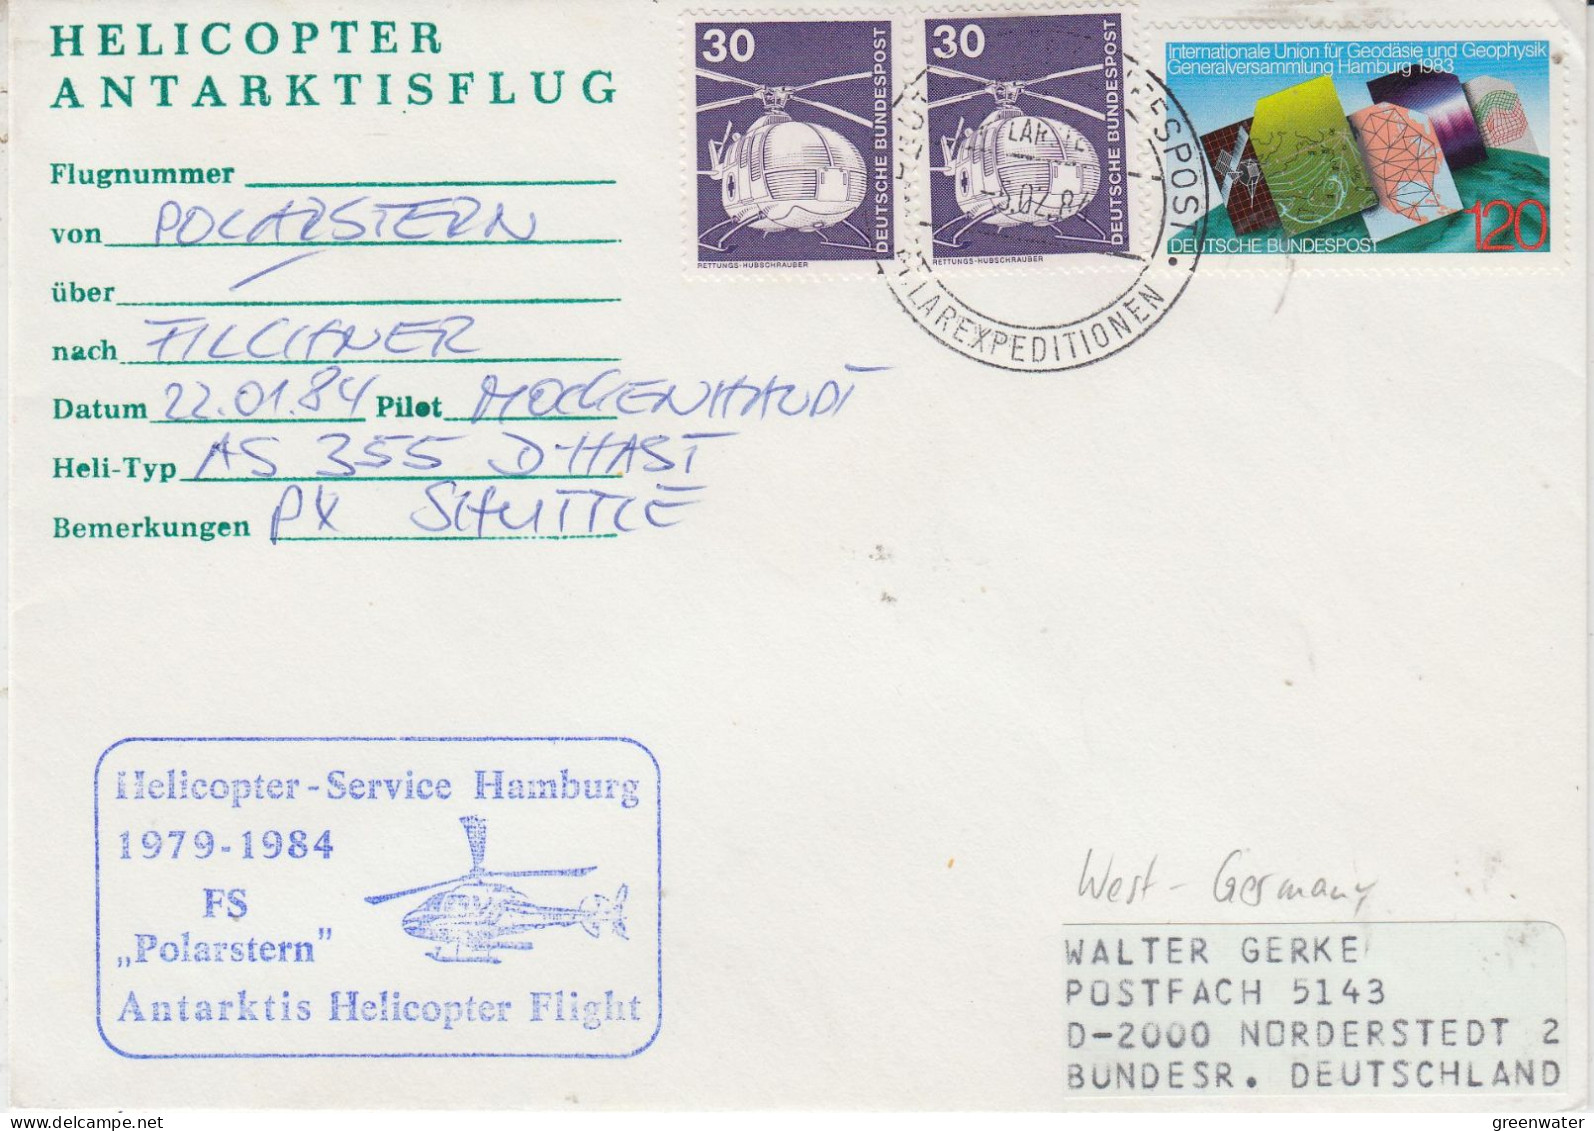 HELICOPTER
ANTARKTISFLUG
Flugnummer
von POLARSTERN
über
nach FILCHNER
Datum 22.01.84 Pilot MOCKENHAUPT
Heli-Typ AS 355 D-HAST
Bemerkungen PX SHUTTLE
30
DEUTSCHE BUNDESPOST
RETTUNGS-HUBSCHRAUBER
30
DEUTSCHE BUNDESPOST
RETTUNGS-HUBSCHRAUBER
Internationale Union für Geodäsie und Geophysik
Generalversammlung Hamburg 1983
DEUTSCHE BUNDESPOST
120
Helicopter-Service Hamburg
1979-1984
FS
„Polarstern”
Antarktis Helicopter Flight
West-Germany
WALTER GERKE
POSTFACH 5143
D-2000 NORDERSTEDT 2
BUNDESR. DEUTSCHLAND
greenwater